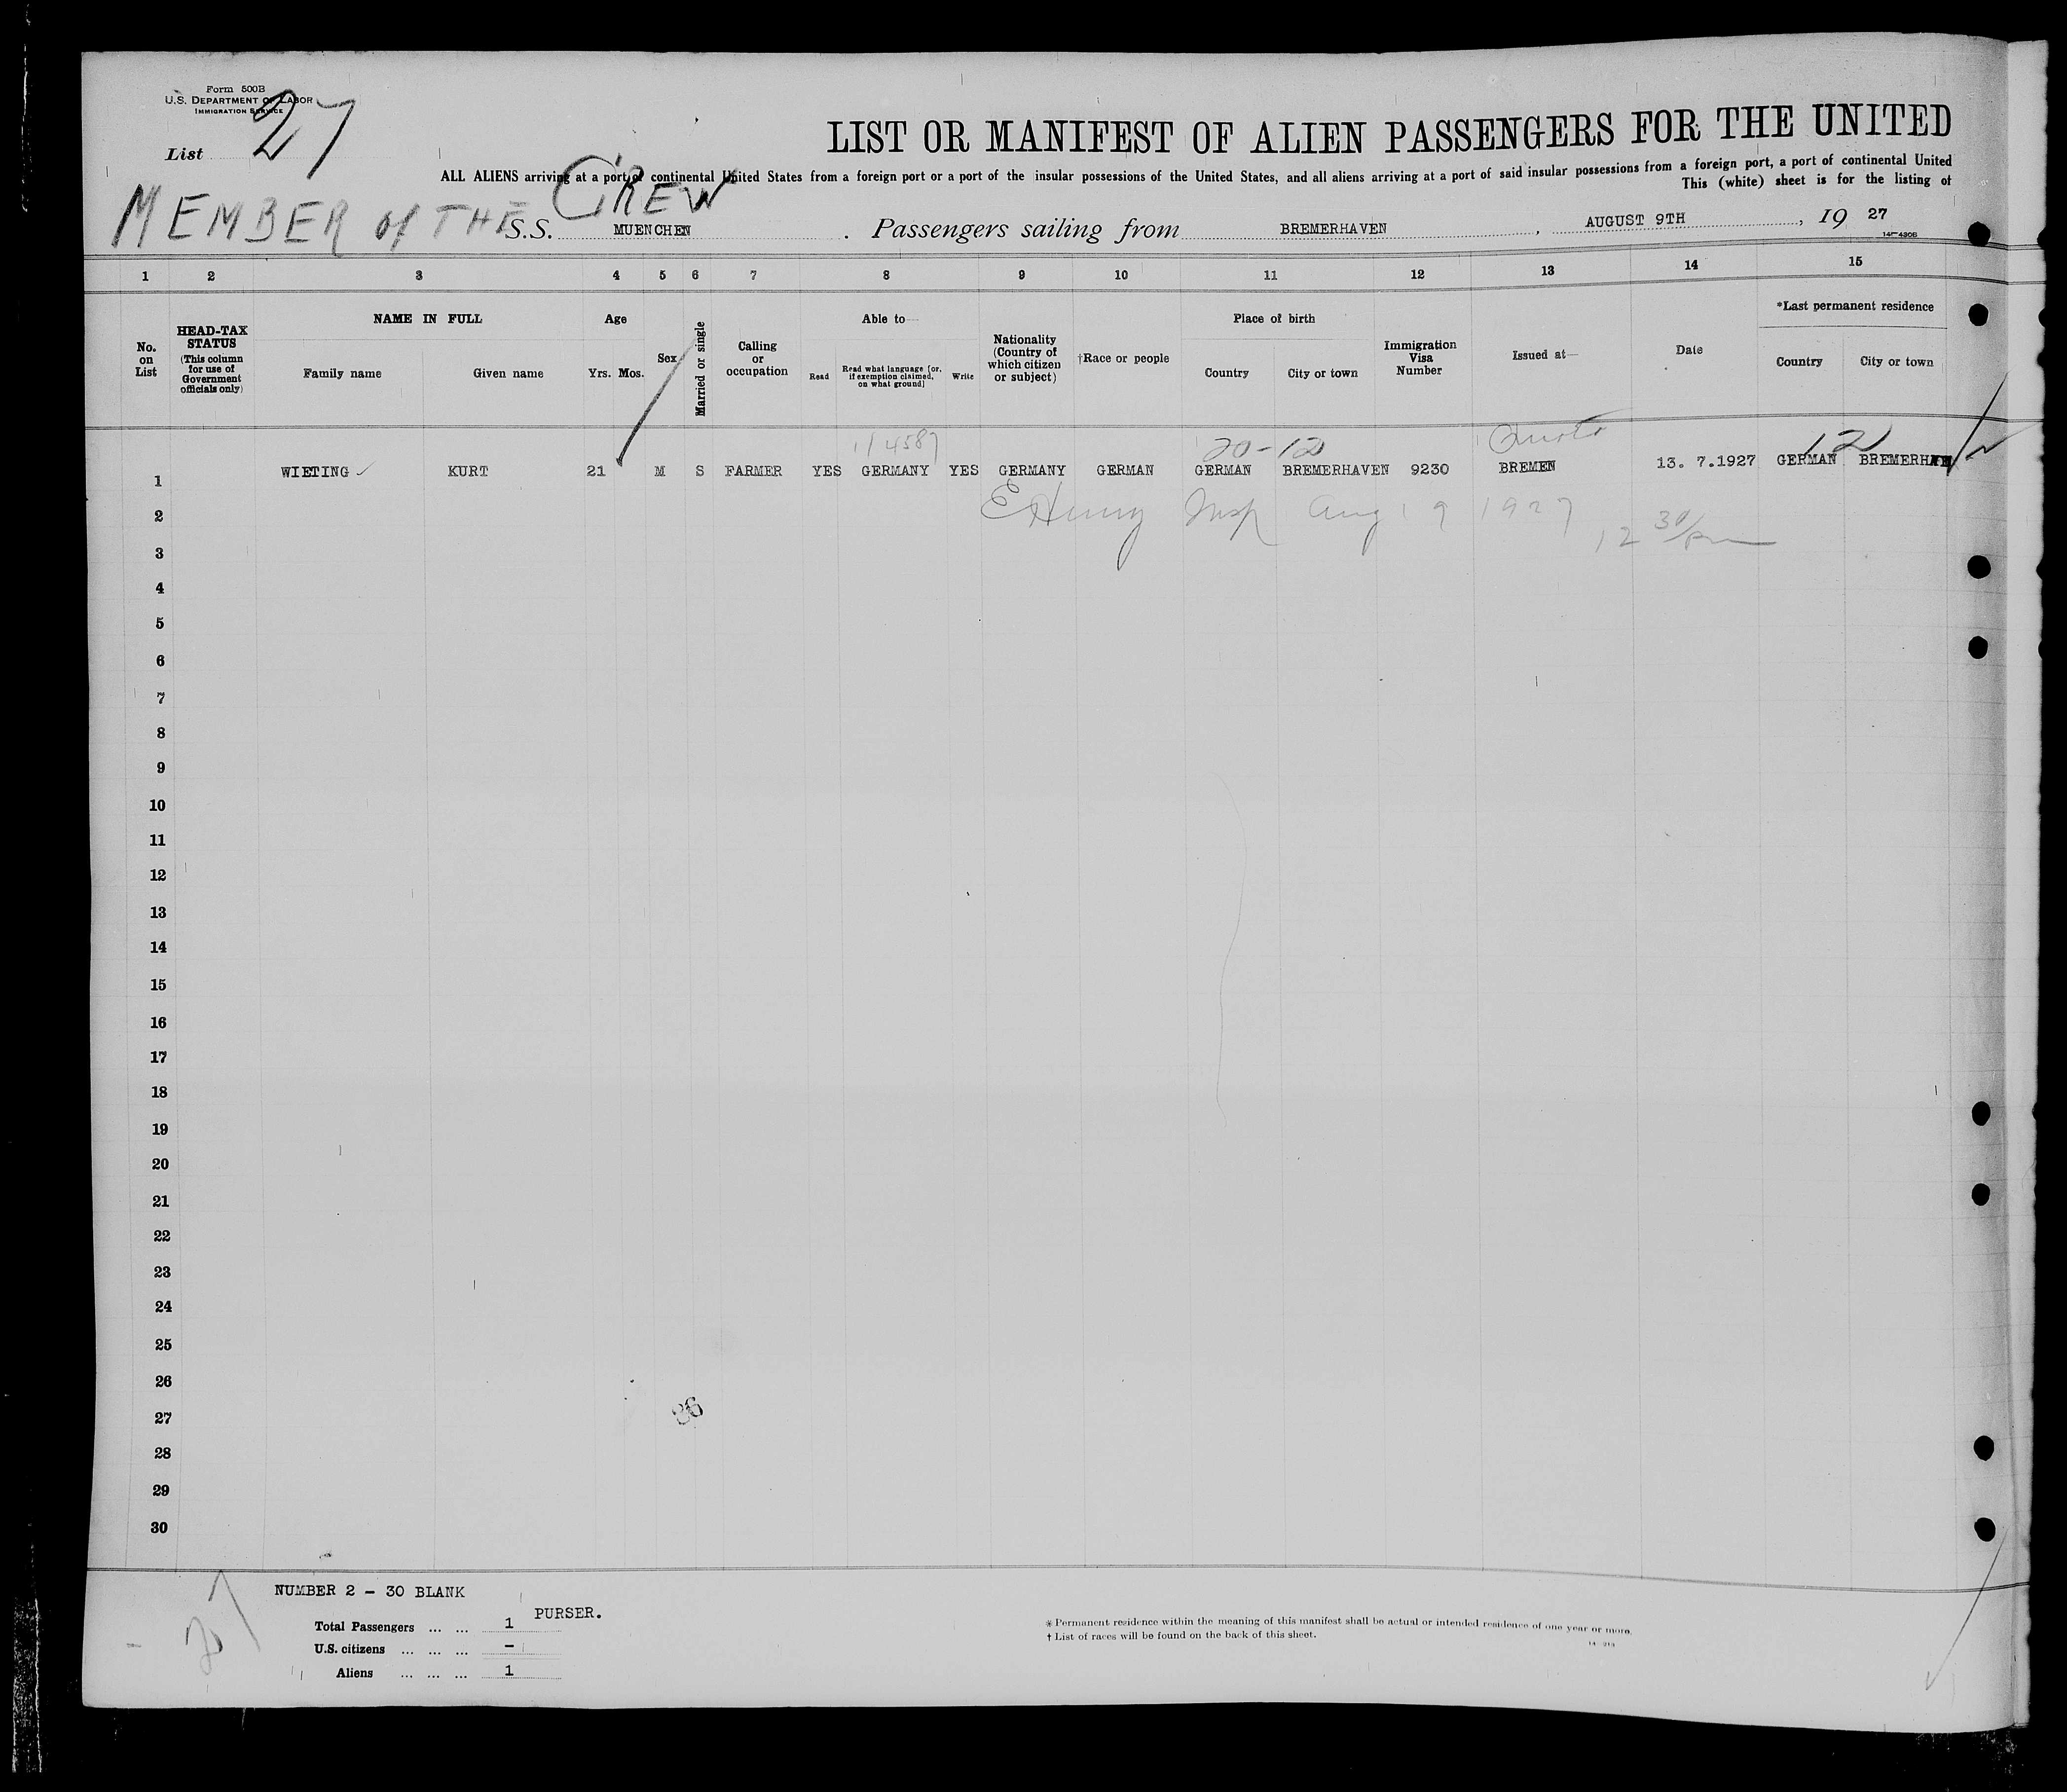 Form 500B
U.S. DEPARTMENT OF LABOR
IMMIGRATION SERVICE
List 27
LIST OR MANIFEST OF ALIEN PASSENGERS FOR THE UNITED
ALL ALIENS arriving at a port of continental United States from a foreign port or a port of the insular possessions of the United States, and all aliens arriving at a port of said insular possessions from a foreign port, a port of continental United
This (white) sheet is for the listing of
MEMBER of THE CREW
S.S. MUENCHEN. Passengers sailing from BREMERHAVEN, AUGUST 9TH, 19 27
1 2 3 4 5 6 7 8 9 10 11 12 13 14 15
No. on List
HEAD-TAX STATUS
(This column for use of Government officials only)
NAME IN FULL
Family name
Given name
Age
Yrs. Mos.
Sex
Married or single
Calling or occupation
Able to—
Read
Read what language [or, if exemption claimed, on what ground]
Write
Nationality (Country of which citizen or subject)
†Race or people
Place of birth
Country
City or town
Immigration Visa Number
Issued at—
Date
*Last permanent residence
Country
City or town
20-12
12
1 WIETING KURT 21 M S FARMER YES GERMANY YES GERMANY GERMAN GERMAN BREMERHAVEN 9230 BREMEN 13. 7.1927 GERMAN BREMERHAVEN
2
Insp Aug 19 1927
12 30/pm
3
4
5
6
7
8
9
10
11
12
13
14
15
16
17
18
19
20
21
22
23
24
25
26
27
28
29
30
NUMBER 2 - 30 BLANK
PURSER.
Total Passengers ... ... 1
U.S. citizens ... ... ... -
Aliens ... ... ... 1
27
* Permanent residence within the meaning of this manifest shall be actual or intended residence of one year or more.
† List of races will be found on the back of this sheet.